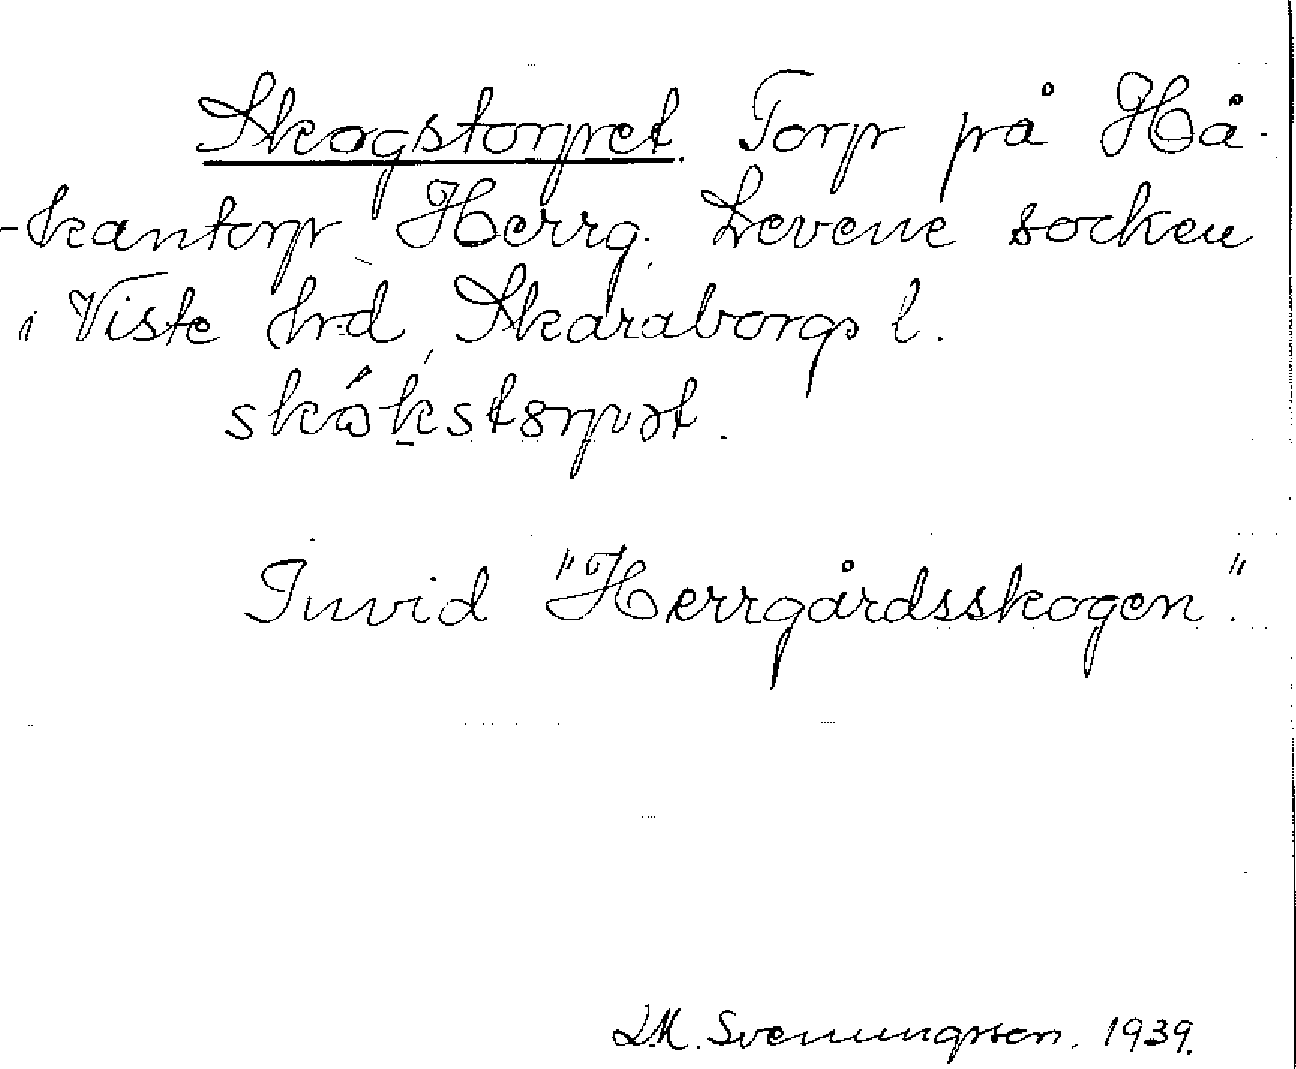 Skogstorpet. Torp på Hå-
-kantorp Herrg. Levene socken
i Viste hrd, Skaraborgs l.
skókstorpət.
Invid "Herrgårdsskogen".
L.M. Svenungsson. 1939.